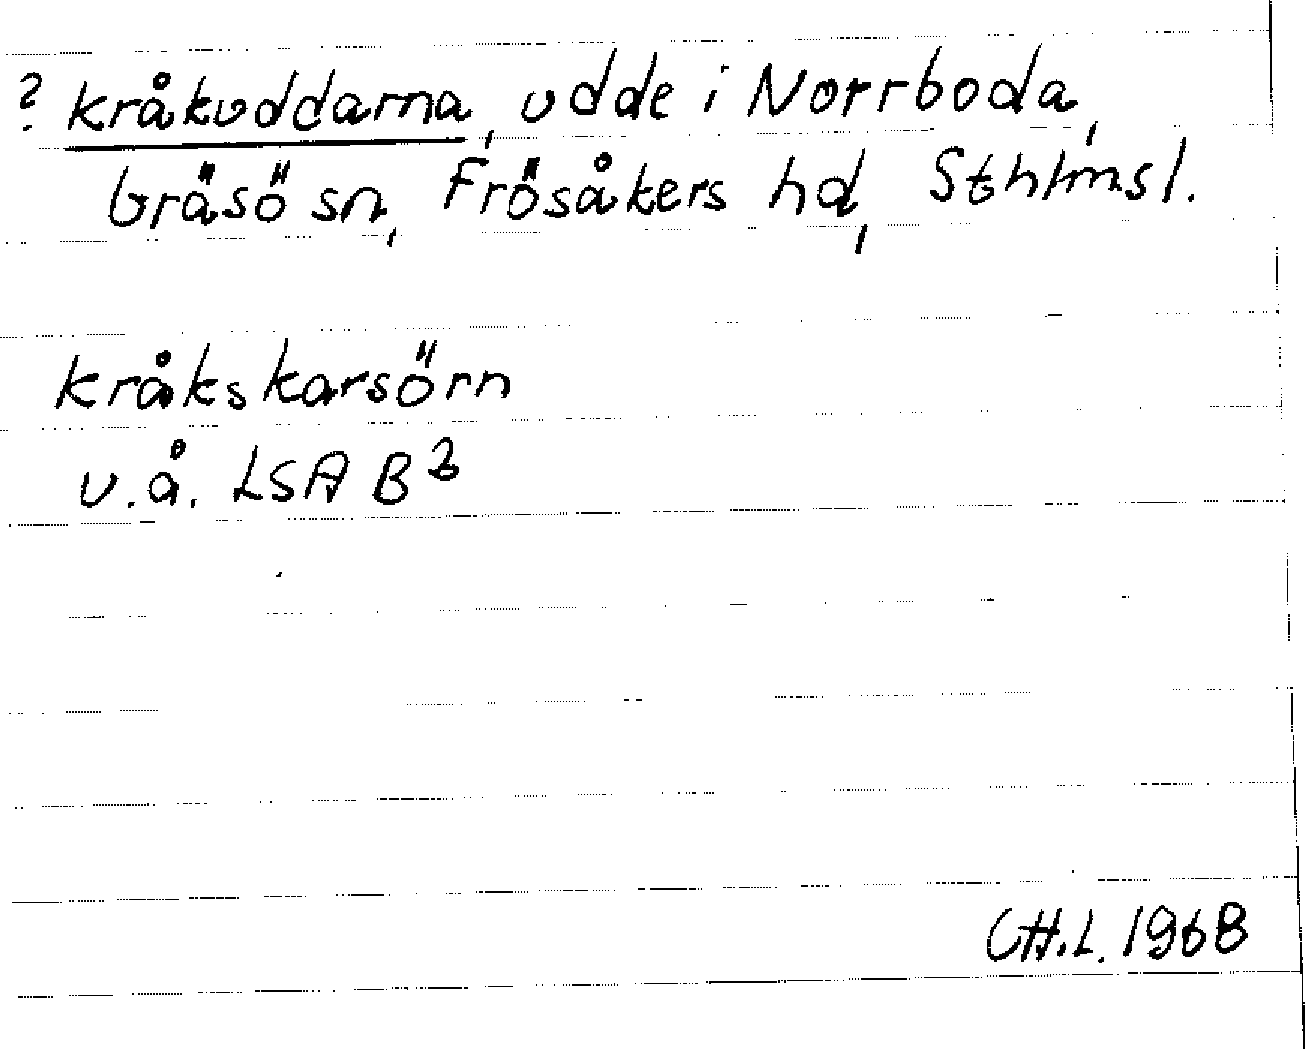 ? Kråkuddarna, udde i Norrboda,
Gräsö sn, Frösåkers hd, Sthlmsl.
Kråkskarsörn
u.å. LSA B²
CH.L. 1968